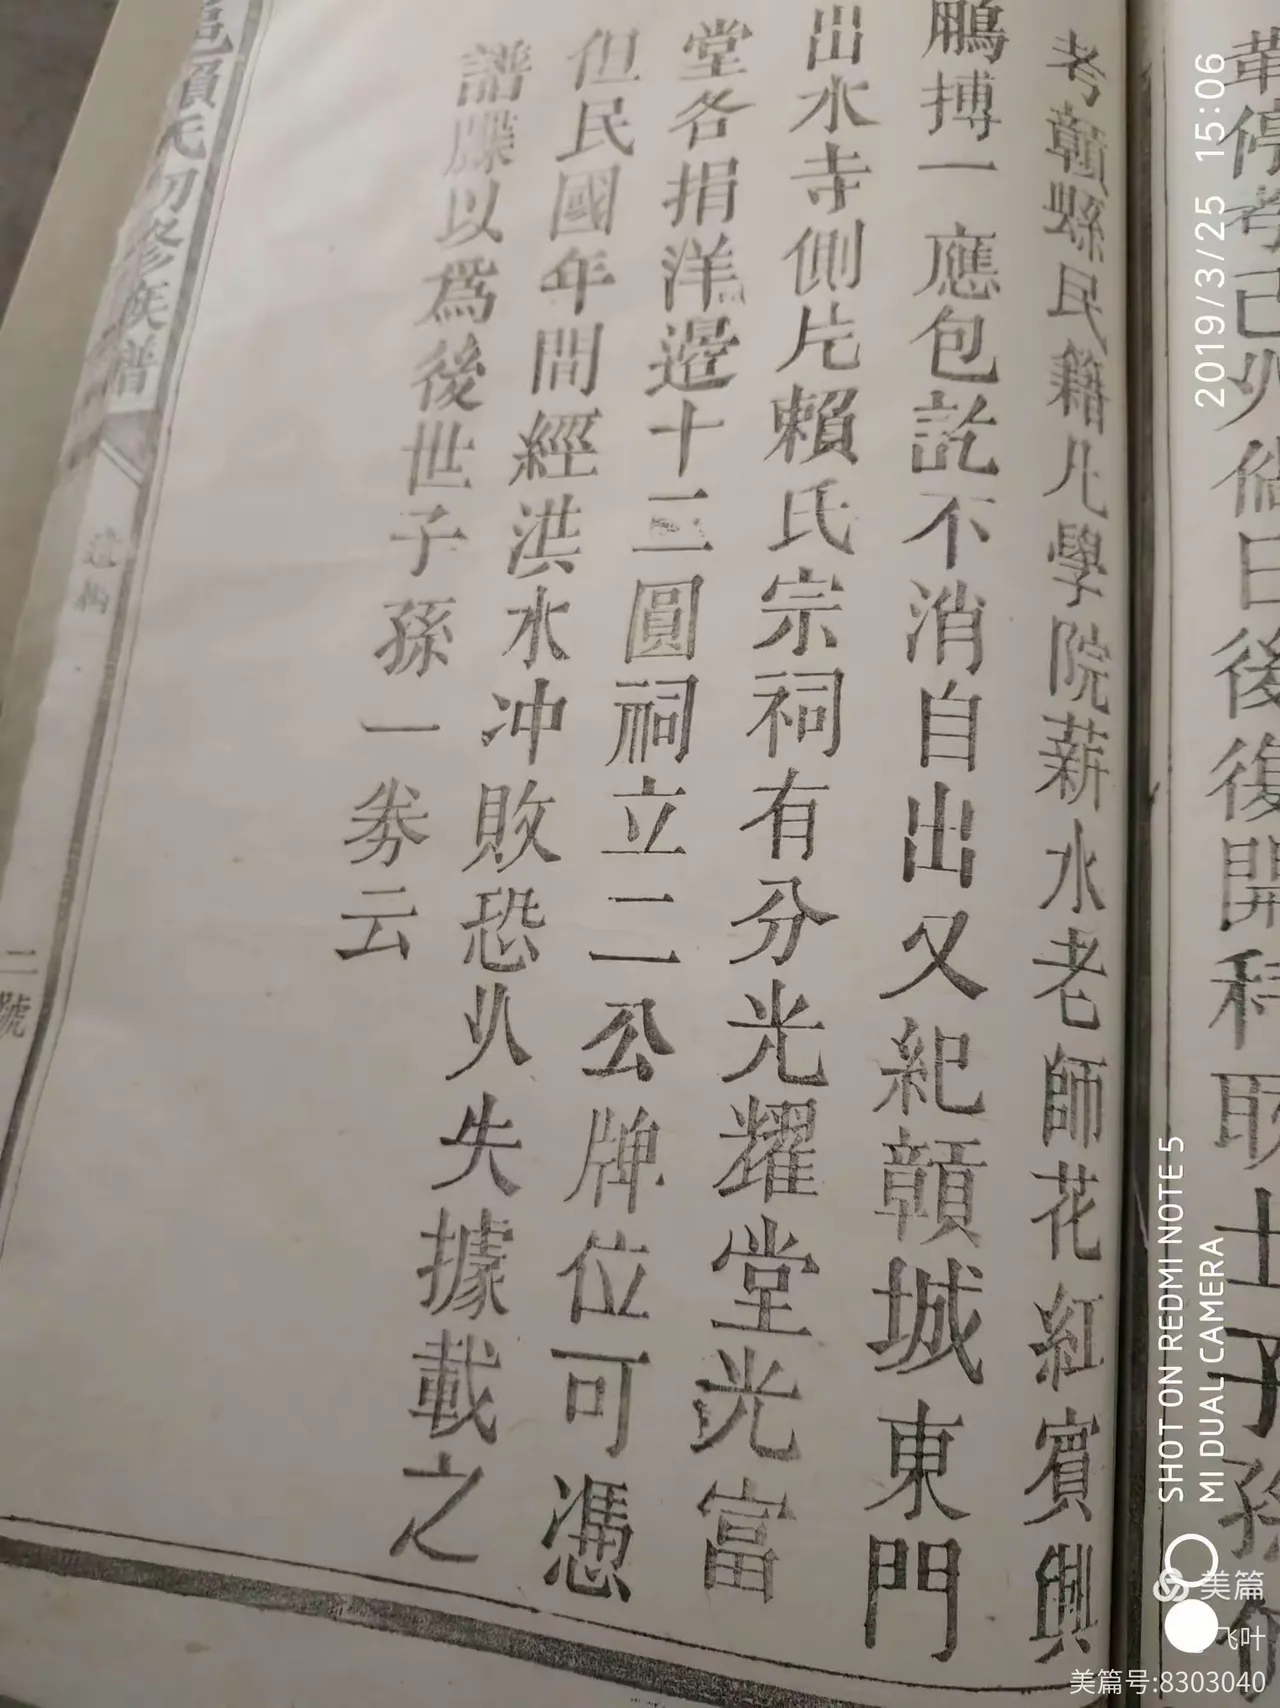 華停考己久倘日後復開科取士子孫
考贛縣民籍凡學院薪水老師花紅賓興
鵬摶一應包訖不消自出又紀贛城東門
出水寺側片賴氏宗祠有分光耀堂光富
堂各捐洋邊十三圓祠立二公牌位可憑
但民國年間經洪水冲敗恐乆失據載之
譜牒以爲後世子孫一劵云
邑賴氏初修族譜
二號
2019/3/25 15:06
SHOT ON REDMI NOTE 5
MI DUAL CAMERA
美篇
飞叶
美篇号:8303040